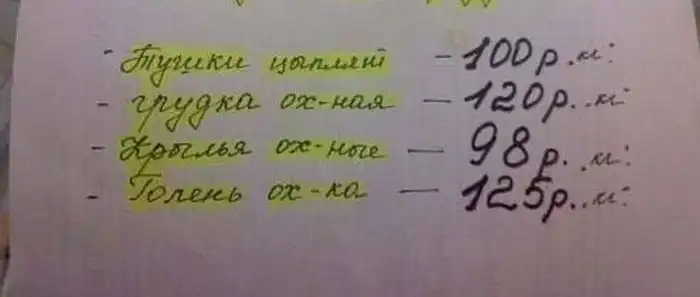 - Тушки цыплят - 100р.кг.
- грудка ох-ная - 120р.кг.
- Крылья ох-ные - 98р.кг.
- Голень ох-ка - 125р.кг.